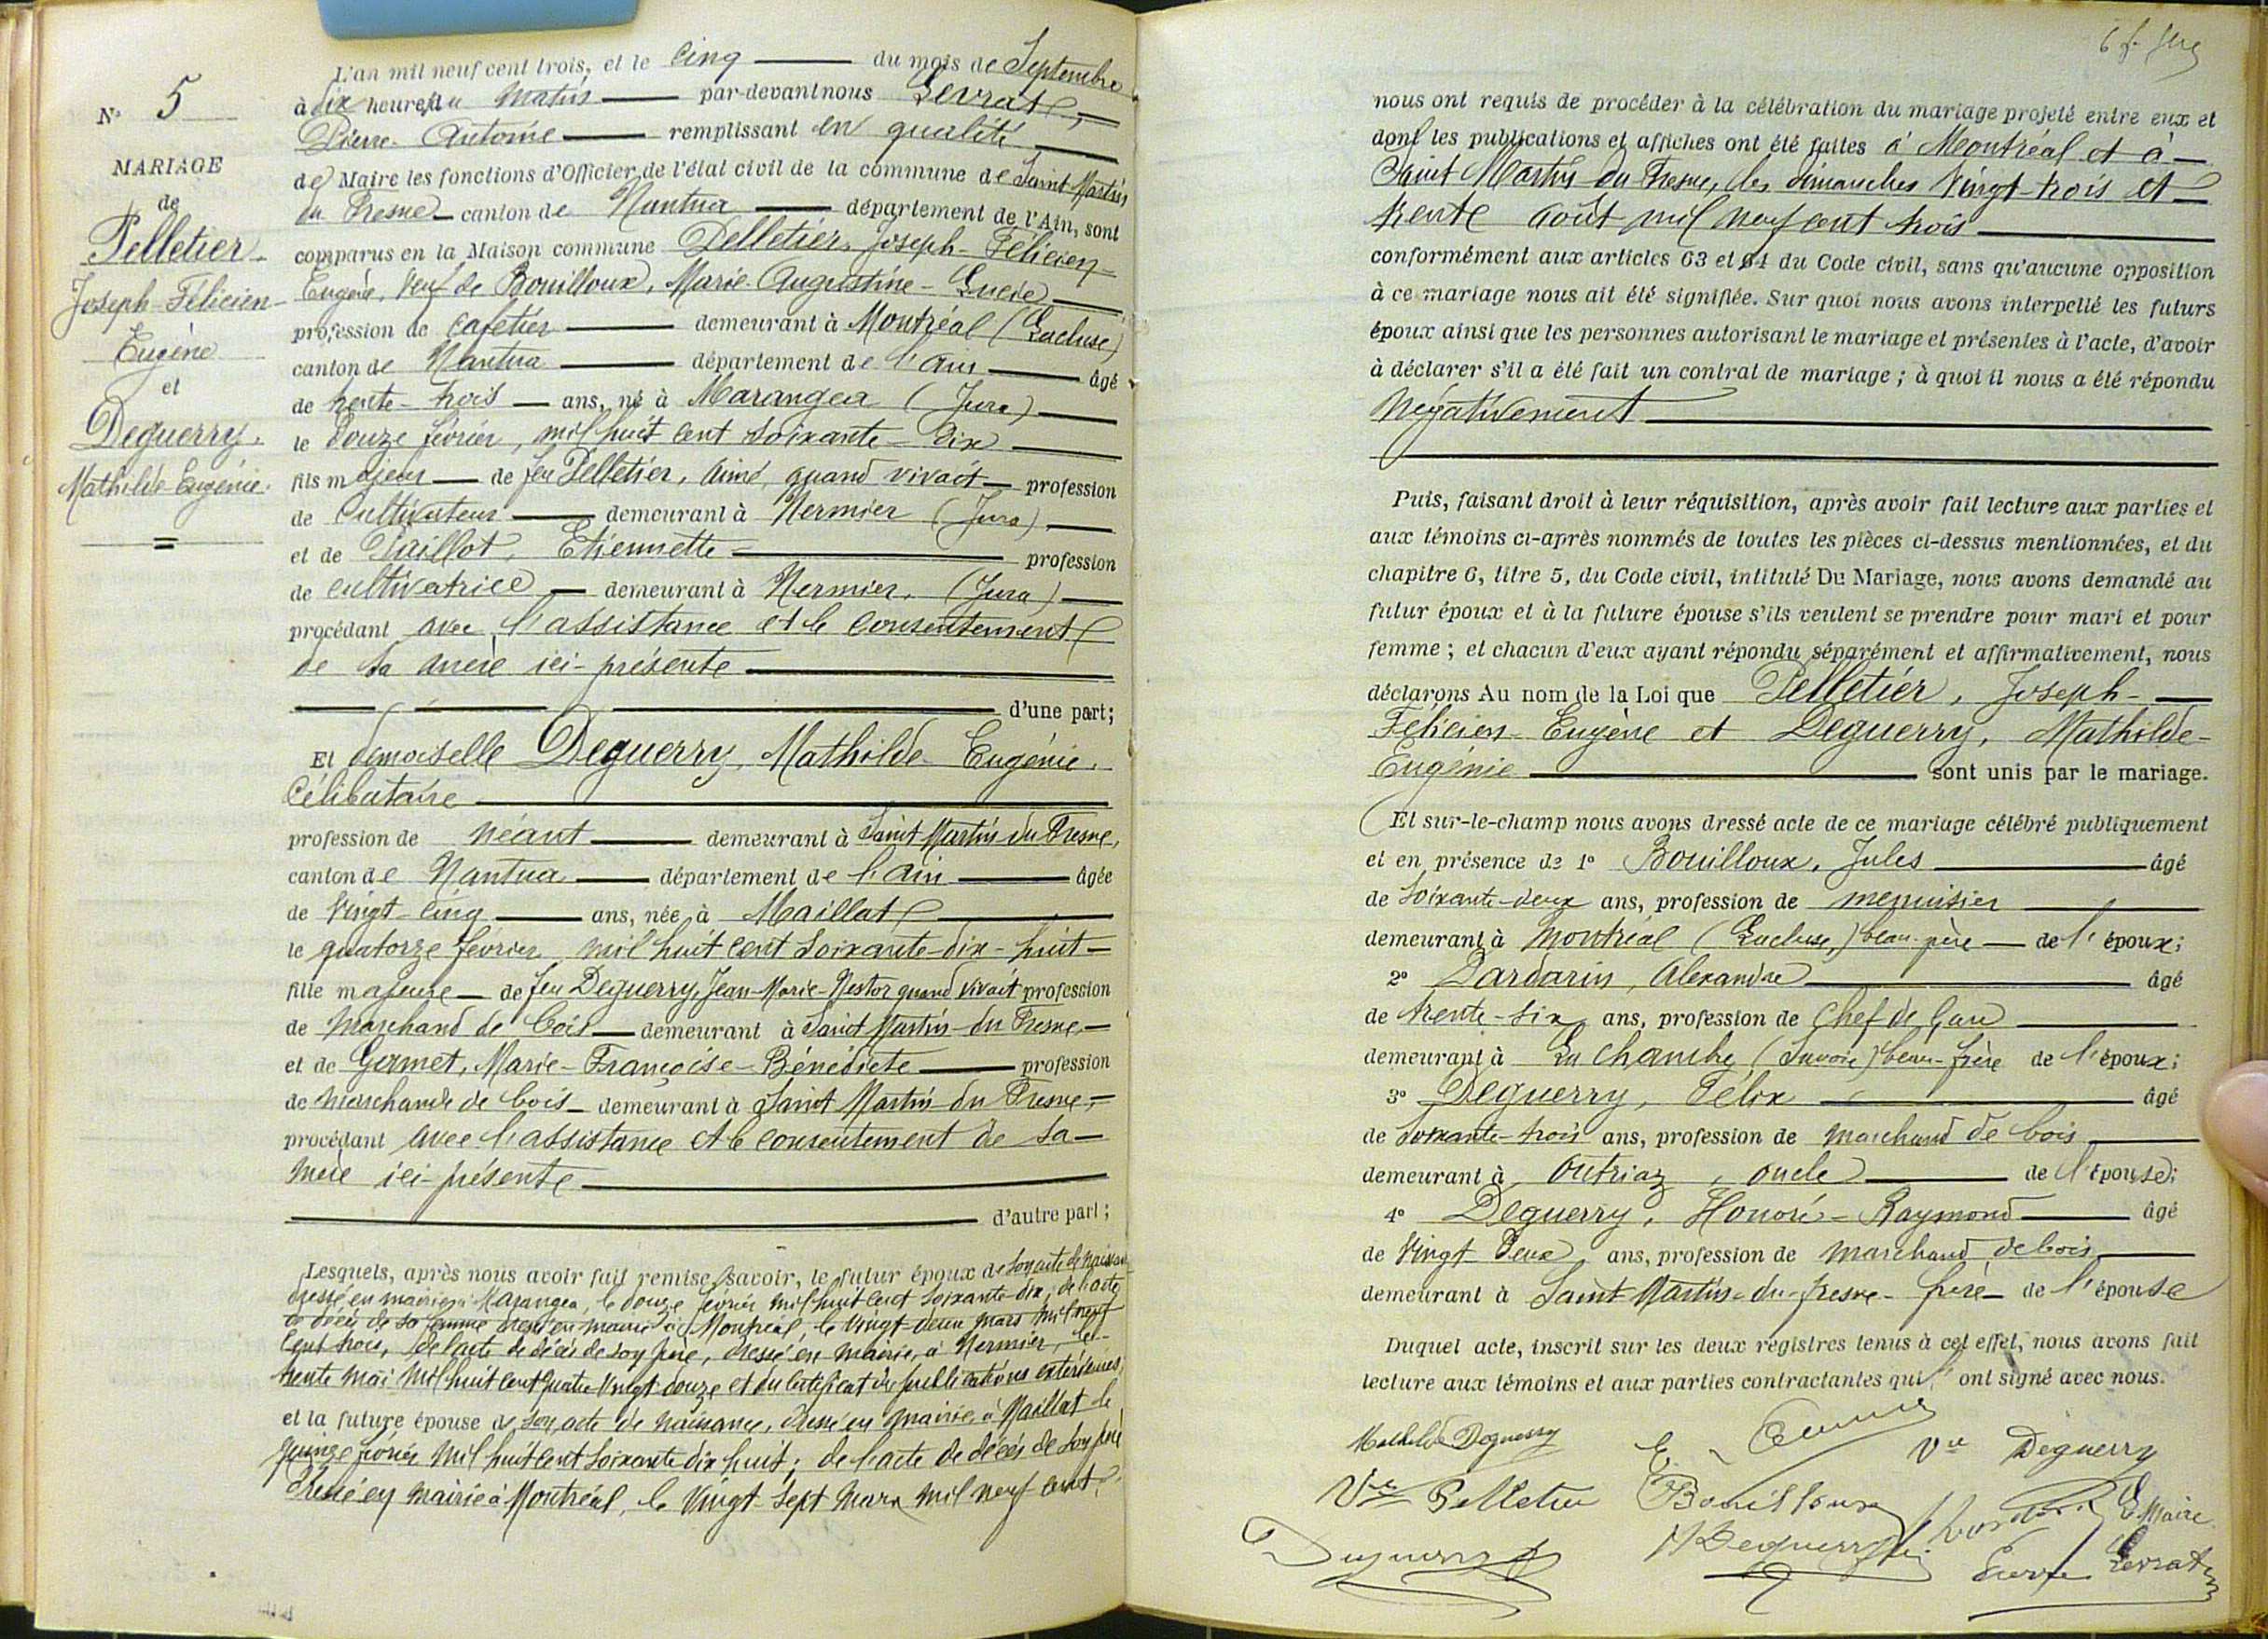 N° 5
MARIAGE
de
Pelletier
Joseph-Félicien-
Eugène
et
Deguerry.
Mathilde Eugénie.
L'an mil neuf cent trois, et le Cinq du mois de Septembre
à dix heures du Matin par-devant nous Levrat,
Pierre-Antoine remplissant en qualité
de Maire les fonctions d'Officier de l'état civil de la commune de Saint Martin
du Fresne canton de Nantua département de l'Ain, sont
comparus en la Maison commune Pelletier, Joseph-Félicien-
Eugène, Veuf de Bouilloux, Marie-Augustine-Lucie
profession de cafetier demeurant à Montréal (Lacluse)
canton de Nantua département de l'Ain âgé
de trente-trois ans, né à Marangea (Jura)
le douze février, mil huit cent soixante-dix
fils majeur de feu Pelletier, Aimé, quand vivait profession
de Cultivateur demeurant à Nermier (Jura)
et de Taillot, Etiennette profession
de cultivatrice demeurant à Nermier, (Jura)
procédant avec l'assistance et le consentement
de sa mère ici-présente
d'une part;
Et demoiselle Deguerry, Mathilde-Eugénie.
Célibataire
profession de néant demeurant à Saint Martin du Fresne,
canton de Nantua département de l'Ain âgée
de Vingt-cinq ans, née à Maillat
le quatorze février mil huit cent soixante-dix-huit
fille majeure de feu Deguerry, Jean-Marie-Nestor quand vivait profession
de Marchand de bois demeurant à Saint Martin-du Fresne
et de Germet, Marie-Françoise-Bénédicte profession
de marchande de bois demeurant à Saint Martin-du Fresne,
procédant avec l'assistance et le consentement de sa
mère ici-présente
d'autre part;
Lesquels, après nous avoir fait remise, savoir, le futur époux de son acte de naissance
dressé en mairie à Marangea, le douze février mil huit cent soixante-dix; de l'acte
de décès de sa femme dressé en mairie à Montréal, le vingt-deux mars mil neuf
cent trois, de l'acte de décès de son père, dressé en mairie, à Nermier, le
trente mai mil huit cent quatre vingt douze et du certificat de publications extérieures,
et la future épouse de son acte de naissance, dressé en mairie à Maillat le
quinze février mil huit cent soixante dix huit; de l'acte de décès de son père
dressé en mairie à Montréal, le Vingt-Sept Mars mil neuf cent
nous ont requis de procéder à la célébration du mariage projeté entre eux et
dont les publications et affiches ont été faites à Montréal et à
Saint Martin du Fresne, les dimanches Vingt-trois et
trente août mil neuf cent trois
conformément aux articles 63 et 64 du Code civil, sans qu'aucune opposition
à ce mariage nous ait été signifiée. Sur quoi nous avons interpellé les futurs
époux ainsi que les personnes autorisant le mariage et présentes à l'acte, d'avoir
à déclarer s'il a été fait un contrat de mariage; à quoi il nous a été répondu
Négativement
Puis, faisant droit à leur réquisition, après avoir fait lecture aux parties et
aux témoins ci-après nommés de toutes les pièces ci-dessus mentionnées, et du
chapitre 6, titre 5, du Code civil, intitulé Du Mariage, nous avons demandé au
futur époux et à la future épouse s'ils veulent se prendre pour mari et pour
femme; et chacun d'eux ayant répondu séparément et affirmativement, nous
déclarons Au nom de la Loi que Pelletier, Joseph-
Félicien-Eugène et Deguerry, Mathilde-
Eugénie sont unis par le mariage.
Et sur-le-champ nous avons dressé acte de ce mariage célébré publiquement
et en présence de 1° Bouilloux, Jules âgé
de soixante-deux ans, profession de menuisier
demeurant à Montréal (Lacluse,) beau-père de l'époux;
2° Dardarin, Alexandre âgé
de trente-six ans, profession de Chef de Gare
demeurant à La Chambre (Savoie) beau-frère de l'époux;
3° Deguerry, Félix âgé
de soixante-trois ans, profession de marchand de bois
demeurant à Outriaz, oncle de l'épouse;
4° Deguerry, Honoré-Raymond âgé
de Vingt deux ans, profession de marchand de bois
demeurant à Saint-Martin-du-fresne-frère de l'épouse
Duquel acte, inscrit sur les deux registres tenus à cet effet, nous avons fait
lecture aux témoins et aux parties contractantes qui ont signé avec nous.
Mathilde Deguerry E. Vve Deguerry
Vve Pelletier Bouilloux Le Maire
Deguerry H Deguerry Pierre Levrat